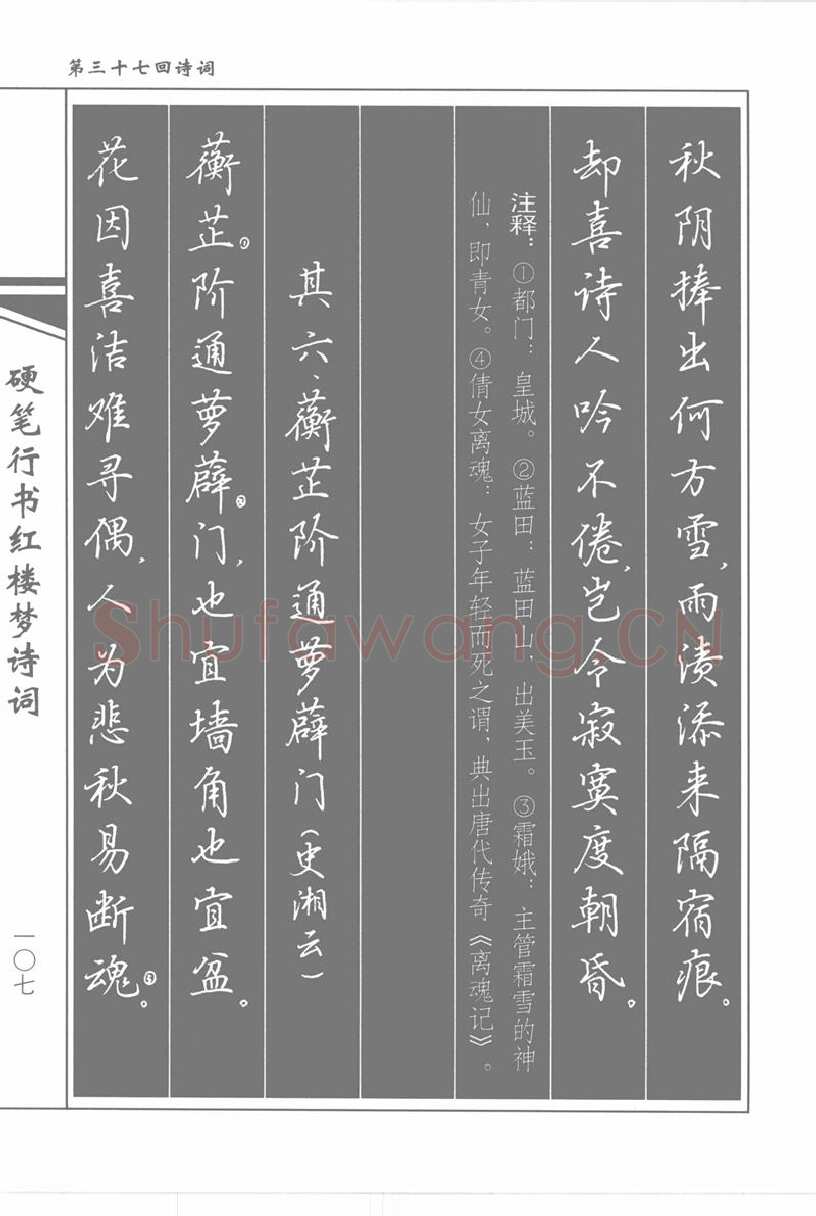 第三十七回诗词
秋阴捧出何方雪，雨渍添来隔宿痕。
却喜诗人吟不倦，岂令寂寞度朝昏。
注释：①都门：皇城。②蓝田：蓝田山，出美玉。③霜娥：主管霜雪的神
仙，即青女。④倩女离魂：女子年轻而死之谓，典出唐代传奇《离魂记》。
其六、蘅芷阶通萝薜门（史湘云）
蘅芷①阶通萝薜②门，也宜墙角也宜盆。
花因喜洁难寻偶，人为悲秋易断魂③。
硬笔行书红楼梦诗词
一〇七
Shufawang.CN